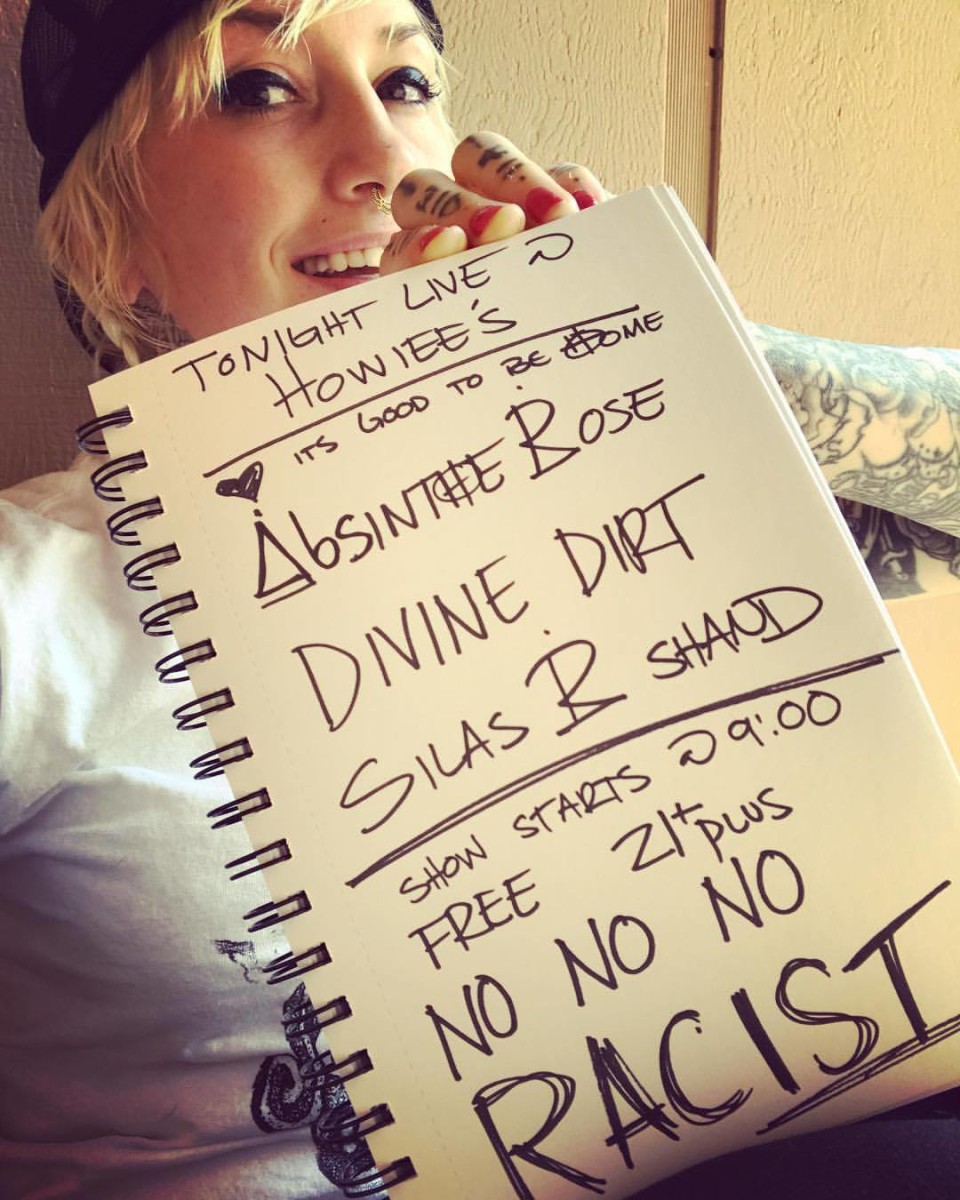 TONIGHT LIVE @
HOWIEE'S
ITS GOOD TO BE HOME
AbSINTHE ROSE
DIVINE DIRT
SILAS R SHAND
SHOW STARTS @ 9:00
FREE 21+ PLUS
NO NO NO
RACIST